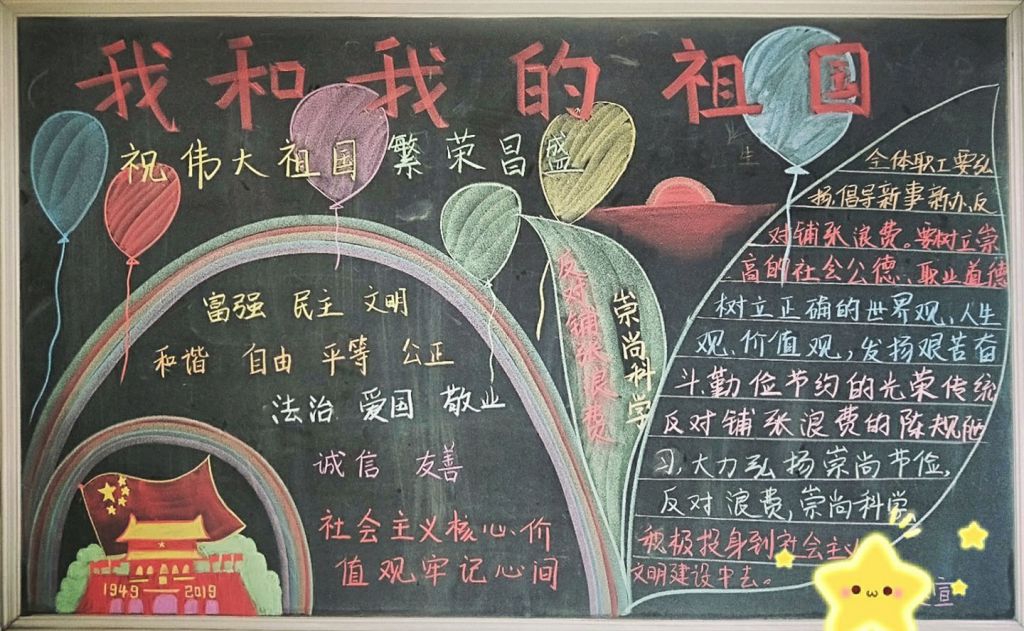 我和我的祖国
祝伟大祖国繁荣昌盛
富强 民主 文明
和谐 自由 平等 公正
法治 爱国 敬业
诚信 友善
社会主义核心价
值观牢记心间
1949 2019
反对铺张浪费
崇尚科学
全体职工要弘
扬,倡导新事新办,反
对铺张浪费。要树立崇
高的社会公德、职业道德
树立正确的世界观、人生
观、价值观,发扬艰苦奋
斗勤俭节约的光荣传统
反对铺张浪费的陈规陋
习,大力弘扬崇尚节俭,
反对浪费,崇尚科学
积极投身到社会主义
文明建设中去。
宣